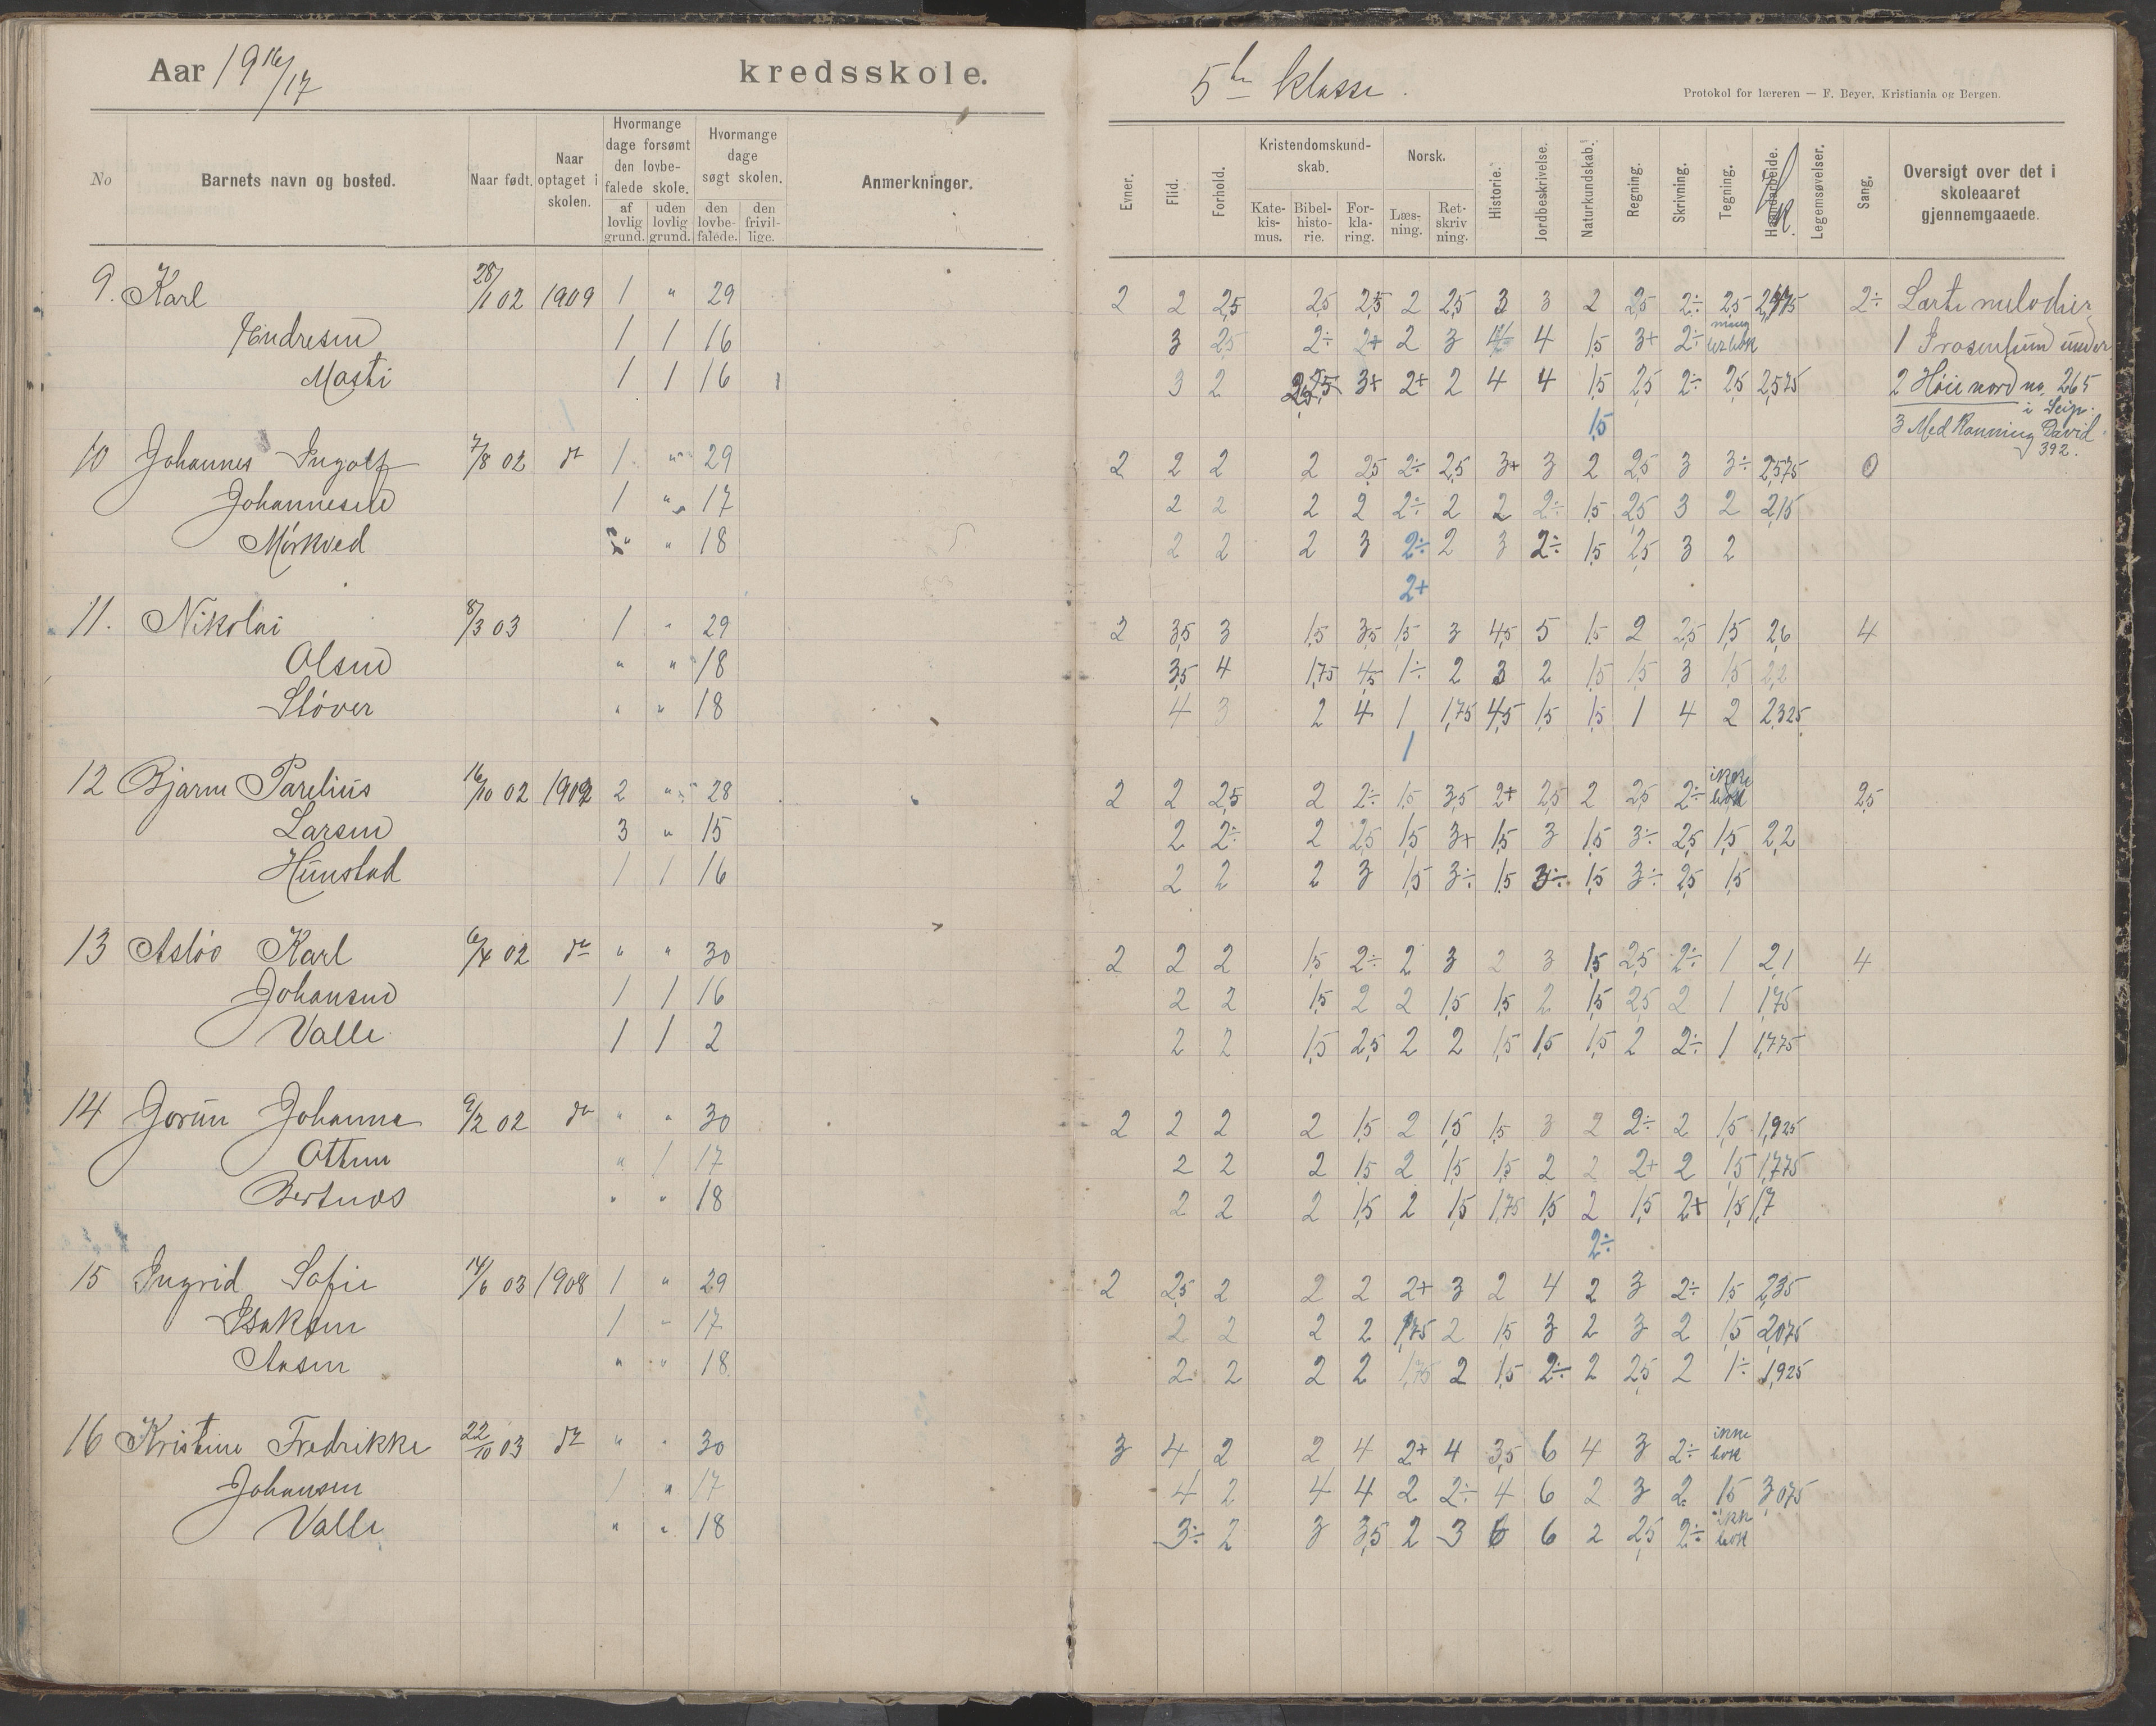 Aar 1916/17 kredsskole.
5te klasse.
Protokol for læreren — F. Beyer, Kristiania og Bergen.
No
Barnets navn og bosted.
Naar født.
Naar optaget i skolen.
Hvormange dage forsømt den lovbefalede skole.
af lovlig grund.
uden lovlig grund.
Hvormange dage søgt skolen.
den lovbefalede.
den frivillige.
Anmerkninger.
Evner.
Flid.
Forhold.
Kristendomskundskab.
Katekismus.
Bibelhistorie.
Forklaring.
Norsk.
Læsning.
Retskrivning.
Historie.
Jordbeskrivelse.
Naturkundskab.
Regning.
Skrivning.
Tegning.
Haandarbeide.
Legemsøvelser.
Sang.
Oversigt over det i skoleaaret gjennemgaaede.
9. Karl 28/1 02 1909 1 " 29 2 2 2,5 2,5 2,5 2 2,5 3 3 2 2,5 2÷ 2,5 2÷ Lærte melodier
Endresen 1 1 16 3 2,5 2÷ 2+ 2 3 4 1,5 3+ 2÷
Masti 1 1 16 3 2 2,5 3+ 2+ 2 4 4 1,5 2,5 2÷ 2,5 2,575 2 Høie nord no. 265
1,5
3 Med Ranning David 392.
10 Johannes Ingolf 7/8 02 do 1 " 29 2 2 2 2 2,5 2÷ 2,5 3+ 3 2 2,5 3 3÷ 2,575 0
Johannesen 1 " 17 2 2 2 2 2÷ 2 2 2÷ 1,5 2,5 3 2 2,15
Mörkved " 18 2 2 2 3 2÷ 2 3 2÷ 1,5 2,5 3 2
2+
11. Nikolai 8/3 03 1 " 29 2 3,5 3 1,5 3,5 1,5 3 4,5 5 1,5 2 2,5 1,5 2,6 4
Olsen " " 18 3,5 4 1,75 4,5 1÷ 2 3 2 1,5 1,5 3 1,5 2,2
Støver " " 18 4 3 2 4 1 1,75 4,5 1,5 1,5 1 4 2 2,325
1
12 Bjarne Parelius 16/10 02 1909 2 " 28 2 2 2,5 2 2÷ 1,5 3,5 2+ 2,5 2 2,5 2÷ ikke bok 2,5
Larsen 3 " 15 2 2÷ 2 2,5 1,5 3+ 1,5 3 1,5 3÷ 2,5 1,5 2,2
Hunstad 1 1 16 2 2 2 3 1,5 3÷ 1,5 3÷ 1,5 3÷ 2,5 1,5
13 Asløv Karl 6/4 02 do " " 30 2 2 2 1,5 2÷ 2 3 2 3 1,5 2,5 2÷ 1 2,1 4
Johansen 1 1 16 2 2 1,5 2 2 1,5 1,5 2 1,5 2,5 2 1 1,75
Valle 1 1 2 2 2 1,5 2,5 2 2 1,5 1,5 1,5 2 2÷ 1 1,775
14 Jorun Johanna 9/2 02 do " " 30 2 2 2 2 1,5 2 1,5 1,5 3 2 2÷ 2 1,5 1,925
Ottem " 1 17 2 2 2 1,5 2 1,5 1,5 2 2 2+ 2 1,5 1,775
Bertnes " " 18 2 2 2 1,5 2 1,5 1,75 1,5 2 1,5 2+ 1,5 1,7
2÷
15 Ingrid Sofie 14/6 03 1908 1 " 29 2 2,5 2 2 2 2+ 3 2 4 2 3 2÷ 1,5 2,35
Isaksen 1 " 17 2 2 2 2 1,75 2 1,5 3 2 3 2 1,5 2,075
Aasen " " 18 2 2 2 2 1,75 2 1,5 2÷ 2 2,5 2 1÷ 1,925
16 Kristine Fredrikke 22/10 03 do " " 30 3 4 2 2 4 2+ 4 3,5 6 4 3 2÷ ikke bok
Johansen 1 " 17 4 2 4 4 2 2÷ 4 6 2 3 2 1,5 3,075
Valle " " 18 3÷ 2 3 3,5 2 3 6 6 2 2,5 2÷ ikke bok